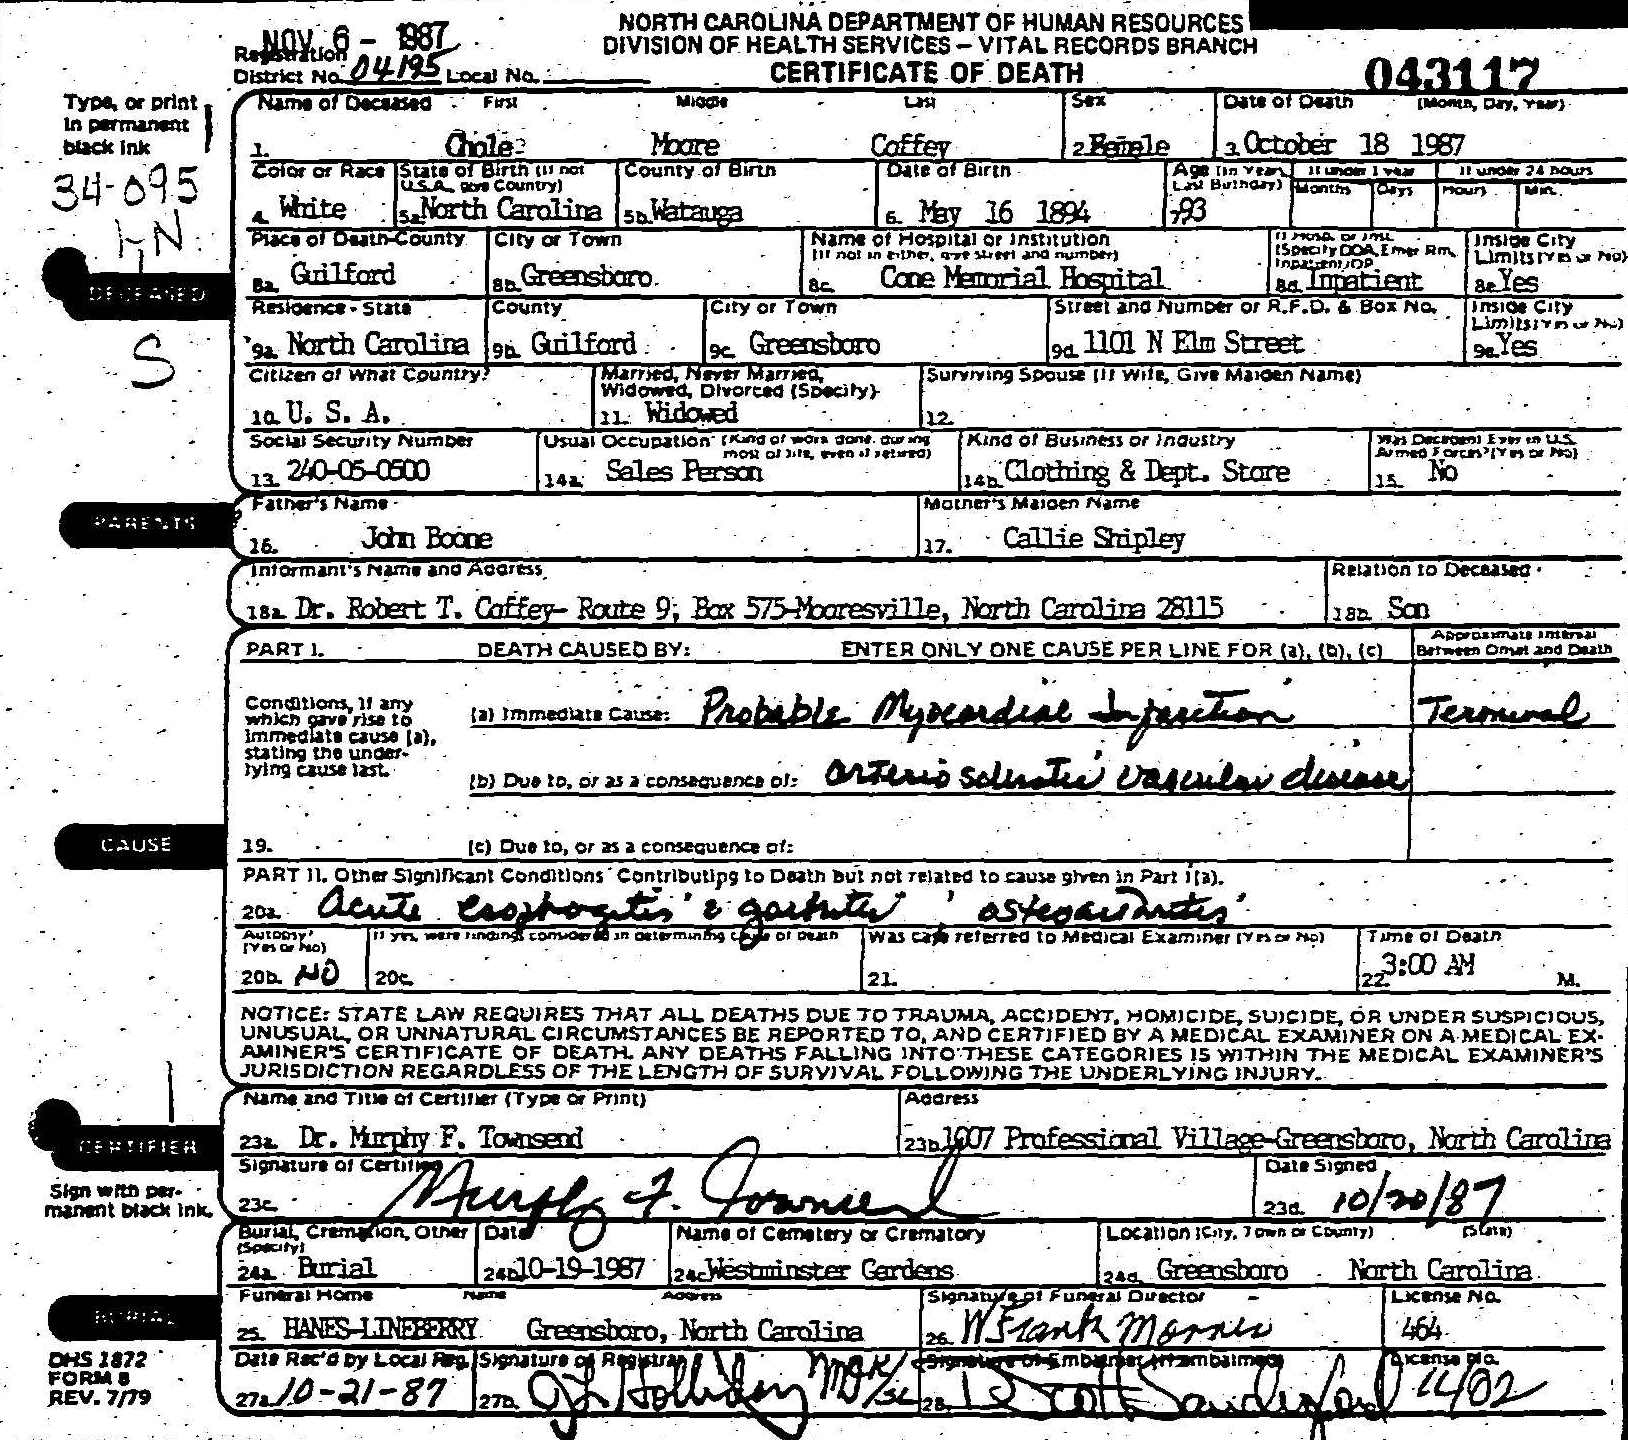 NORTH CAROLINA DEPARTMENT OF HUMAN RESOURCES
NOV 6 - 1987
DIVISION OF HEALTH SERVICES - VITAL RECORDS BRANCH
Registration
District No. 04195 Local No.
CERTIFICATE OF DEATH
043117
Type, or print
in permanent
black ink
34-095
DECEASED
S
Name of Deceased First Middle Last Sex Date of Death (Month, Day, Year)
1. Moore Coffey 2. Female 3. October 18 1987
Color or Race State of Birth (If not U.S.A. give Country) County of Birth Date of Birth Age (in Years Last Birthday) If under 1 year If under 24 hours
Months Days Hours Min.
4. White 5a. North Carolina 5b. Watauga 6. May 16 1894 7. 93
Place of Death-County City or Town Name of Hospital or Institution (If not in either, give street and number) If Hosp. or Inst. (Specify DOA, Emer Rm, Inpatient, OP Inside City Limits (Yes or No)
8a. Guilford 8b. Greensboro 8c. Cone Memorial Hospital 8d. Inpatient 8e. Yes
Residence - State County City or Town Street and Number or R.F.D. & Box No. Inside City Limits (Yes or No)
9a. North Carolina 9b. Guilford 9c. Greensboro 9d. 1101 N Elm Street 9e. Yes
Citizen of What Country? Married, Never Married, Widowed, Divorced (Specify) Surviving Spouse (If Wife, Give Maiden Name)
10. U. S. A. 11. Widowed 12.
Social Security Number Usual Occupation (Kind of work done during most of life, even if retired) Kind of Business or Industry Was Decedent Ever in U.S. Armed Forces? (Yes or No)
13. 240-05-0500 14a. Sales Person 14b. Clothing & Dept. Store 15. No
PARENTS
Father's Name Mother's Maiden Name
16. John Boone 17. Callie Shipley
Informant's Name and Address Relation to Deceased
18a. Dr. Robert T. Coffey- Route 9, Box 575-Mooresville, North Carolina 28115 18b. Son
PART I. DEATH CAUSED BY: ENTER ONLY ONE CAUSE PER LINE FOR (a), (b), (c) Approximate Interval Between Onset and Death
Conditions, if any
which gave rise to
immediate cause (a),
stating the under-
lying cause last.
(a) Immediate Cause: Probable Myocardial Infarction Terminal
(b) Due to, or as a consequence of: arteriosclerotic vascular disease
CAUSE
19. (c) Due to, or as a consequence of:
PART II. Other Significant Conditions Contributing to Death but not related to cause given in Part I(a).
20a. Acute esophagitis & gastritis, osteoarthritis
Autopsy? (Yes or No) If yes, were findings considered in determining cause of death Was case referred to Medical Examiner (Yes or No) Time of Death
20b. NO 20c. 21. 22. 3:00 AM M.
NOTICE: STATE LAW REQUIRES THAT ALL DEATHS DUE TO TRAUMA, ACCIDENT, HOMICIDE, SUICIDE, OR UNDER SUSPICIOUS,
UNUSUAL, OR UNNATURAL CIRCUMSTANCES BE REPORTED TO, AND CERTIFIED BY A MEDICAL EXAMINER ON A MEDICAL EX-
AMINER'S CERTIFICATE OF DEATH. ANY DEATHS FALLING INTO THESE CATEGORIES IS WITHIN THE MEDICAL EXAMINER'S
JURISDICTION REGARDLESS OF THE LENGTH OF SURVIVAL FOLLOWING THE UNDERLYING INJURY.
CERTIFIER
Name and Title of Certifier (Type or Print) Address
23a. Dr. Murphy F. Townsend 23b. 1007 Professional Village-Greensboro, North Carolina
Sign with per-
manent black ink.
Signature of Certifier Date Signed
23c. Murphy F. Townsend 23d. 10/20/87
Burial, Cremation, Other (Specify) Date Name of Cemetery or Crematory Location (City, Town or County) (State)
24a. Burial 24b. 10-19-1987 24c. Westminster Gardens 24d. Greensboro North Carolina
BURIAL
Funeral Home Name Address Signature of Funeral Director License No.
25. HANES-LINEBERRY Greensboro, North Carolina 26. W Frank Morris 464
DHS 1872
FORM 8
REV. 7/79
Date Rec'd by Local Reg. Signature of Registrar Signature of Embalmer (If embalmed) License No.
27a. 10-21-87 27b. Holliday 28. Scott